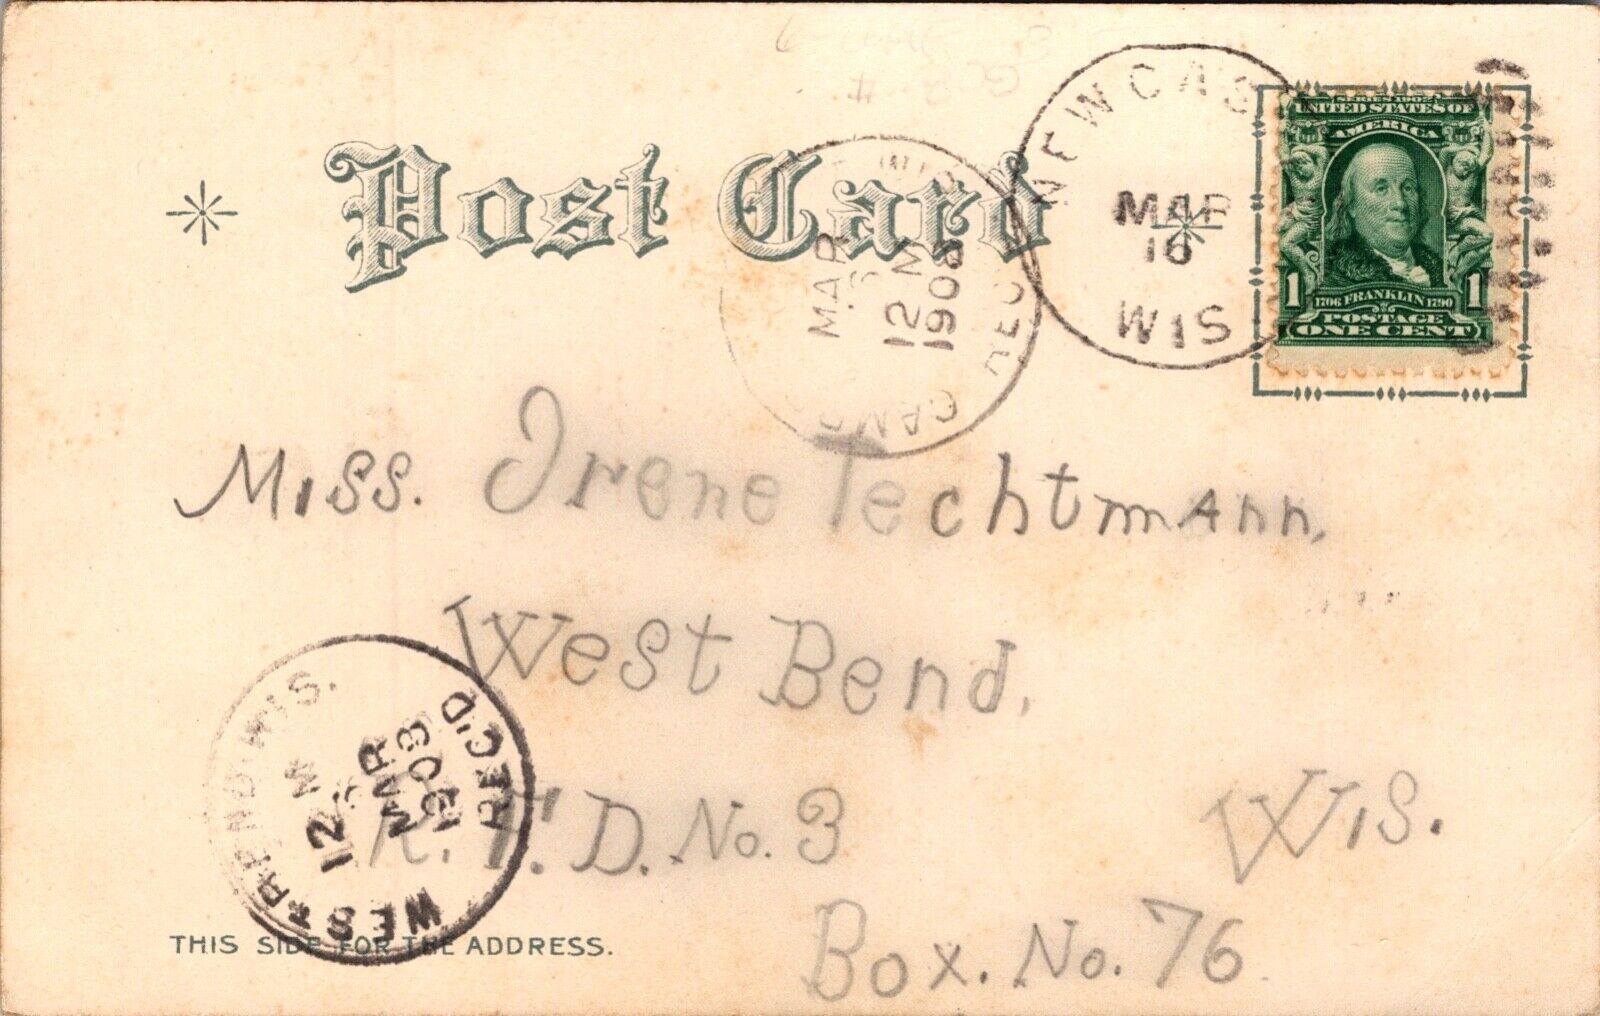 Post Card
NEW CAS
MAR
16
WIS
SERIES 1902
UNITED STATES OF
AMERICA
1 1706 FRANKLIN 1790 1
POSTAGE
ONE CENT
MAR
12 M
1908
REC
CAMP
Miss. Irene Techtmann,
West Bend,
R.F.D. No. 3 Wis.
Box. No. 76
WEST BEND WIS.
12 M
MAR
1908
REC'D
THIS SIDE FOR THE ADDRESS.